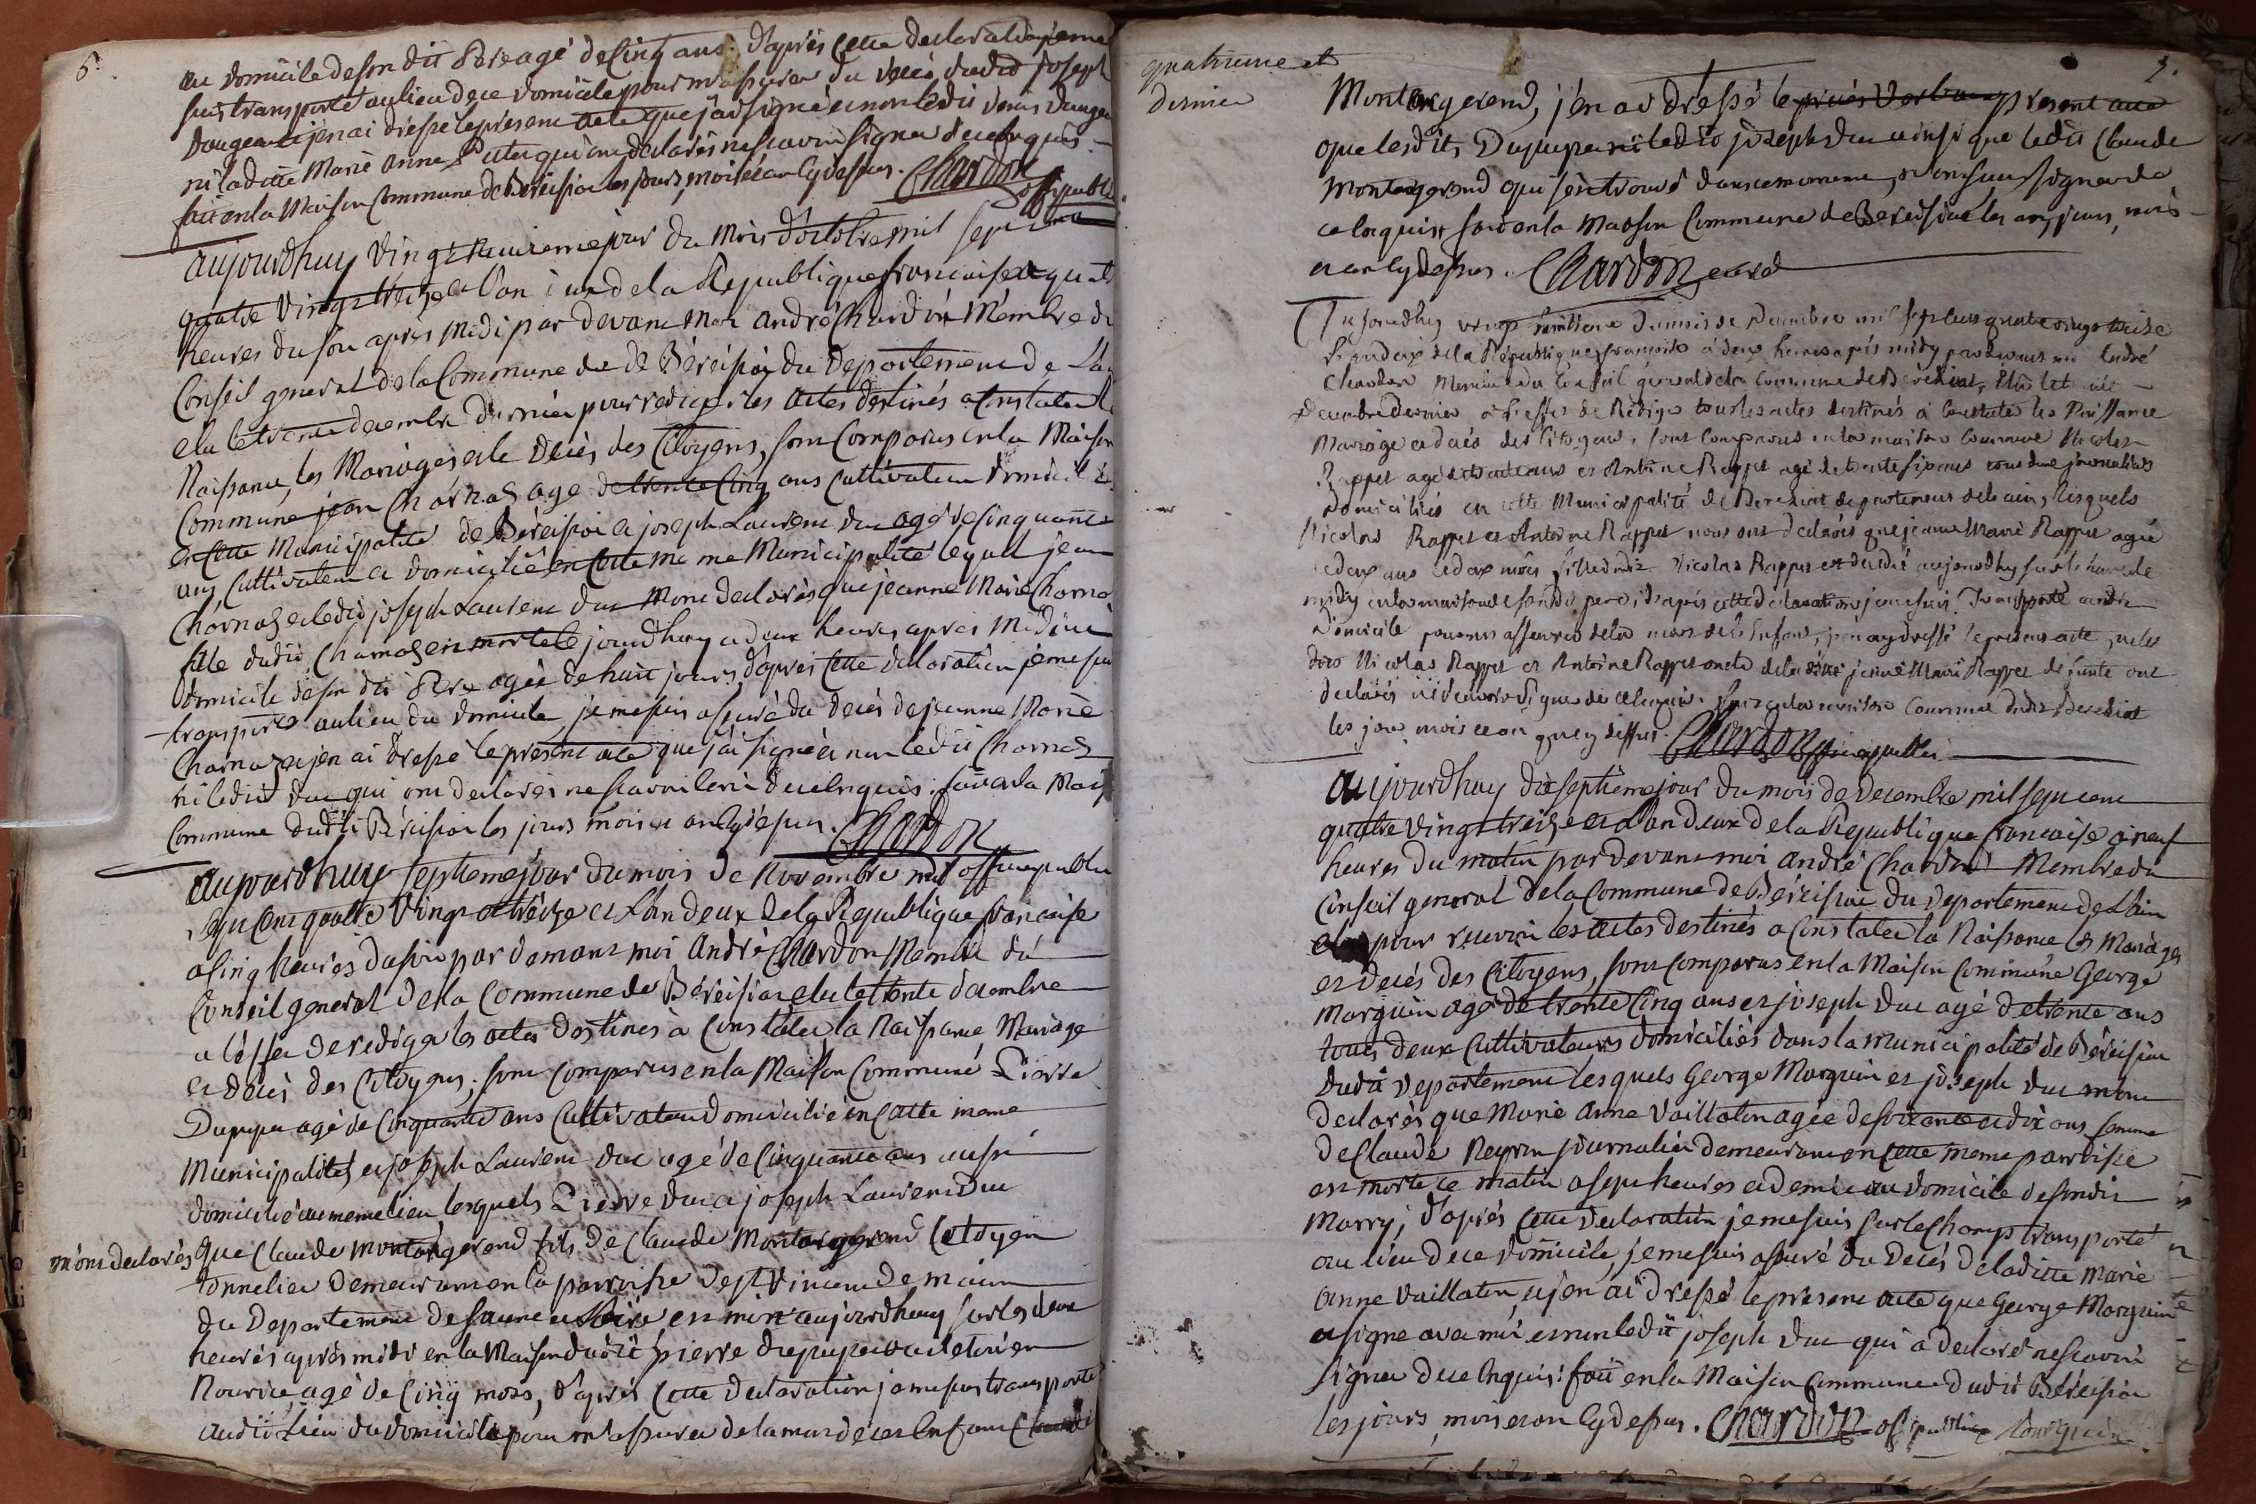 6.
au domicile de son dit Pere agé de Cinq ans. d'après cette declaration je me
suis transporté au lieu de ce domicile pour m'assurer du decés dudit Joseph
et j'en ai dressé le present acte que j'ai signé et non ledit
ni laditte Marie Anne qui ont declarés ne scavoir signer de ce enquis
fait en la Maison Commune de Béreisiat les jours, mois et an cy dessus. Chardon
off. public
aujourdhuy vingt jour du Mois d'octobre mil sept cent
quatre vingt treize et l'an deux de la Republique francaise a quatre
heures du soir après Midi par devant Moi andré Chardon Membre du
Conseil general de la Commune de Béreisiat du Departement de L'ain
elu le trente decembre dernier pour rediger les actes destinés a Constater la
Naissance, les Mariages et le decès des Citoyens, sont Comparus en la Maison
Commune jean Charnas agé de trente Cinq ans Cultivateur domicilié
en cette Municipalité de Béreisiat et joseph Laurent duc agé de Cinquante
ans Cultivateur et domicilié en cette meme Municipalité lequel jean
Charnas et ledit joseph Laurent duc M'ont declarés que jeanne Marie Charnas
fille dudit Charnas est morte ce jourdhuy a deux heures après Midi au
domicile de son dit Pere agée de huit jours, d'après cette declaration je me suis
transporté au lieu du domicile, je me suis assuré du decés de jeanne Marie
Charnas et j'en ai dressé le present acte que j'ai signé et non ledit Charnas
ni ledit duc qui ont declarés ne scavoir de ce enquis. fait en la Maison
Commune dudit Béreisiat les jours mois et an cy dessus. Chardon
officier public
aujourdhuy Septieme jour du mois de Novembre mil
sept Cent quatre Vingt et treize et L'an deux de la Republique francaise
a Cinq heures du soir par devant moi André Chardon Membre du
Conseil general de la Commune de Béreisiat elu le trente decembre
a l'effet de rediger les actes destinés à Constater la Naissance, Mariage
et decès des Citoyens, sont Comparus en la Maison Commune Pierre
Dupupet agé de Cinquante ans Cultivateur domicilié en cette meme
Municipalité, et joseph Laurent duc agé de Cinquante ans aussi
domicilié au meme lieu lesquels Pierre duc et joseph Laurent Duc
m'ont declarés que Claude Montangerend fils de Claude Montangerend Citoyen
tonnelier demeurant en la parroisse de st Vincent de
du Departement de Saune et Loire est mort aujourdhuy sur les deux
heures après midi en la Maison dudit pierre dupupet ou il etoit en
Nourice, agé de Cinq mois, d'après cette declaration je me suis transporté
audit Lieu du domicile pour m'assurer de la mort de cet Enfant Claude
quatrieme et
dernier
7.
Montangerend, j'en ai dressé le present acte
que lesdits Dupupet ni ledit joseph duc ainsi que ledit Claude
Montangerend qui s'est trouvé dans ce moment, signer de
ce enquis fait en la Maison Commune de Béreisiat les an, jour, mois
et an cy dessus. Chardon
Aujourdhuy vingt huitieme du mois de Decembre mil sept cent quatre vingt treize
l'an deux de la République francoise à deux heures après midy pardevant moi André
Chardon Membre du Conseil général de la Commune de Béreisiat, Elu le
Decembre dernier à l'effet de Rédiger tous les actes destinés à Constater les Naissance
Mariage et decés des Citoyens, sont Comparus en la maison Commune Nicolas
Rappet agé de trente ans et Antoine Rappet agé de trente six ans tous deux journaliers
Domiciliés en cette Municipalité de Béreisiat departement de l'ain, lesquels
Nicolas Rappet et Antoine Rappet nous ont declarés que jeanne Marie Rappet agée
de deux ans et deux mois fille dudit Nicolas Rappet est décédée aujourdhuy sur l'heure de
midy en la maison de sondit pere, d'après cette declaration je me suis Transporté audit
Domicile pour m'assurer de la mort de l'Enfant, j'en ay dressé le present acte, que les
dits Nicolas Rappet et Antoine Rappet oncle de la ditte jeanne Marie Rappet defunte ont
declarés signer de ce enquis. fait en la maison Commune dudit Béreisiat
les jour, mois et an que cy dessus. Chardon officier public
aujourdhuy dixseptieme jour du mois de Decembre mil sept cent
quatre vingt treize et L'an deux de la Republique francaise a neuf
heures du matin par devant moi andré Chardon Membre du
Conseil general de la Commune de Béreisiat du Departement de L'ain
elu pour recevoir les actes destinés a Constater la Naissance les Mariages
et decés des Citoyens, sont Comparus en la Maison Commune George
Marguin agé de trente Cinq ans et joseph duc agé de trente ans
tous deux Cultivateurs domiciliés dans la municipalité de Béreisiat
dudit departement lesquels George Marguin et joseph duc m'ont
declarés que Marie Anne Vaillatin agée de soixante et dix ans femme
de Claude journalier demeurant en cette meme parroisse
est morte ce matin a sept heures et demie au domicile de sondit
Marry; d'après cette declaration je me suis sur le Champs transporté
au lieu de ce domicile, je me suis assuré du decés de laditte Marie
Anne Vaillatin, et j'en ai dressé le present acte que George Marguin
a signé avec moi, et non ledit joseph duc qui a declaré ne scavoir
signer de ce enquis: fait en la Maison Commune dudit Béreisiat
les jours, mois et an cy dessus. Chardon off public Marguin